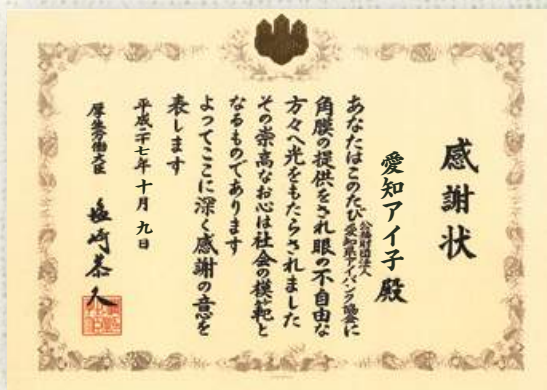 感謝状
愛知アイ子殿
あなたはこのたび公益財団法人愛知県アイバンク協会に
角膜の提供をされ眼の不自由な
方々へ光をもたらされました
その崇高なお心は社会の模範と
なるものであります
よってここに深く感謝の意を
表します
平成二十七年十月九日
厚生労働大臣 塩崎恭久